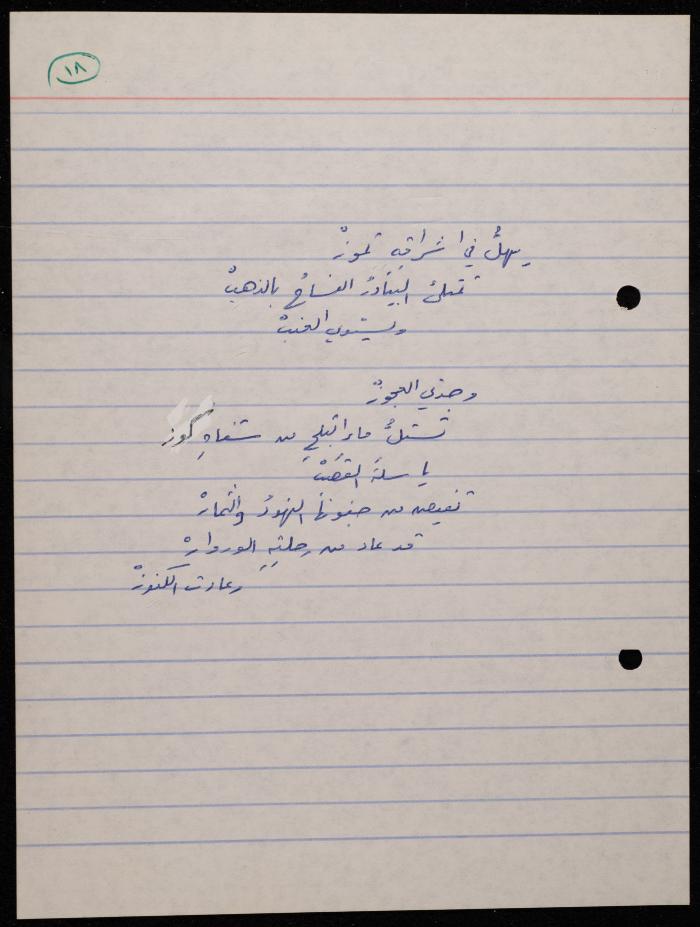 ١٨
يهلُّ في اشراقهِ تموزْ
تمتلئ البيادرُ الفساحُ بالذهبْ
ويستوي العنبْ
وجدتي العجوزْ
تستلُّ ماء الثلجِ من شفاهِ كوز
يا سلة القصبْ
تفيض من جفونها النهودُ والثمارْ
قد عاد من رحلتِهِ الوروارْ
وعادت الكنوزْ